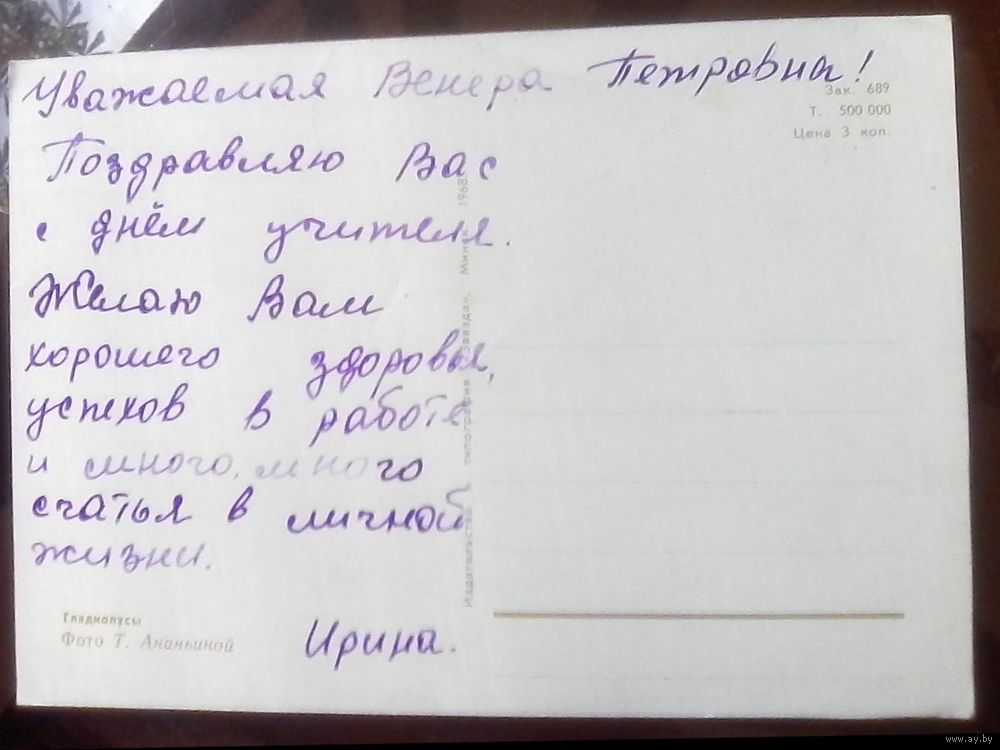 Уважаемая Венера Петровна!
Зак. 689
Т. 500 000
Цена 3 коп.
Поздравляю Вас
с днём учителя.
Желаю Вам
хорошего здоровья,
успехов в работе
и много, много
счастья в личной
жизни.
Ирина.
Гладиолусы
Фото Т. Ананьиной
Издательство и типография «Звязда», Минск 1968
www.ay.by